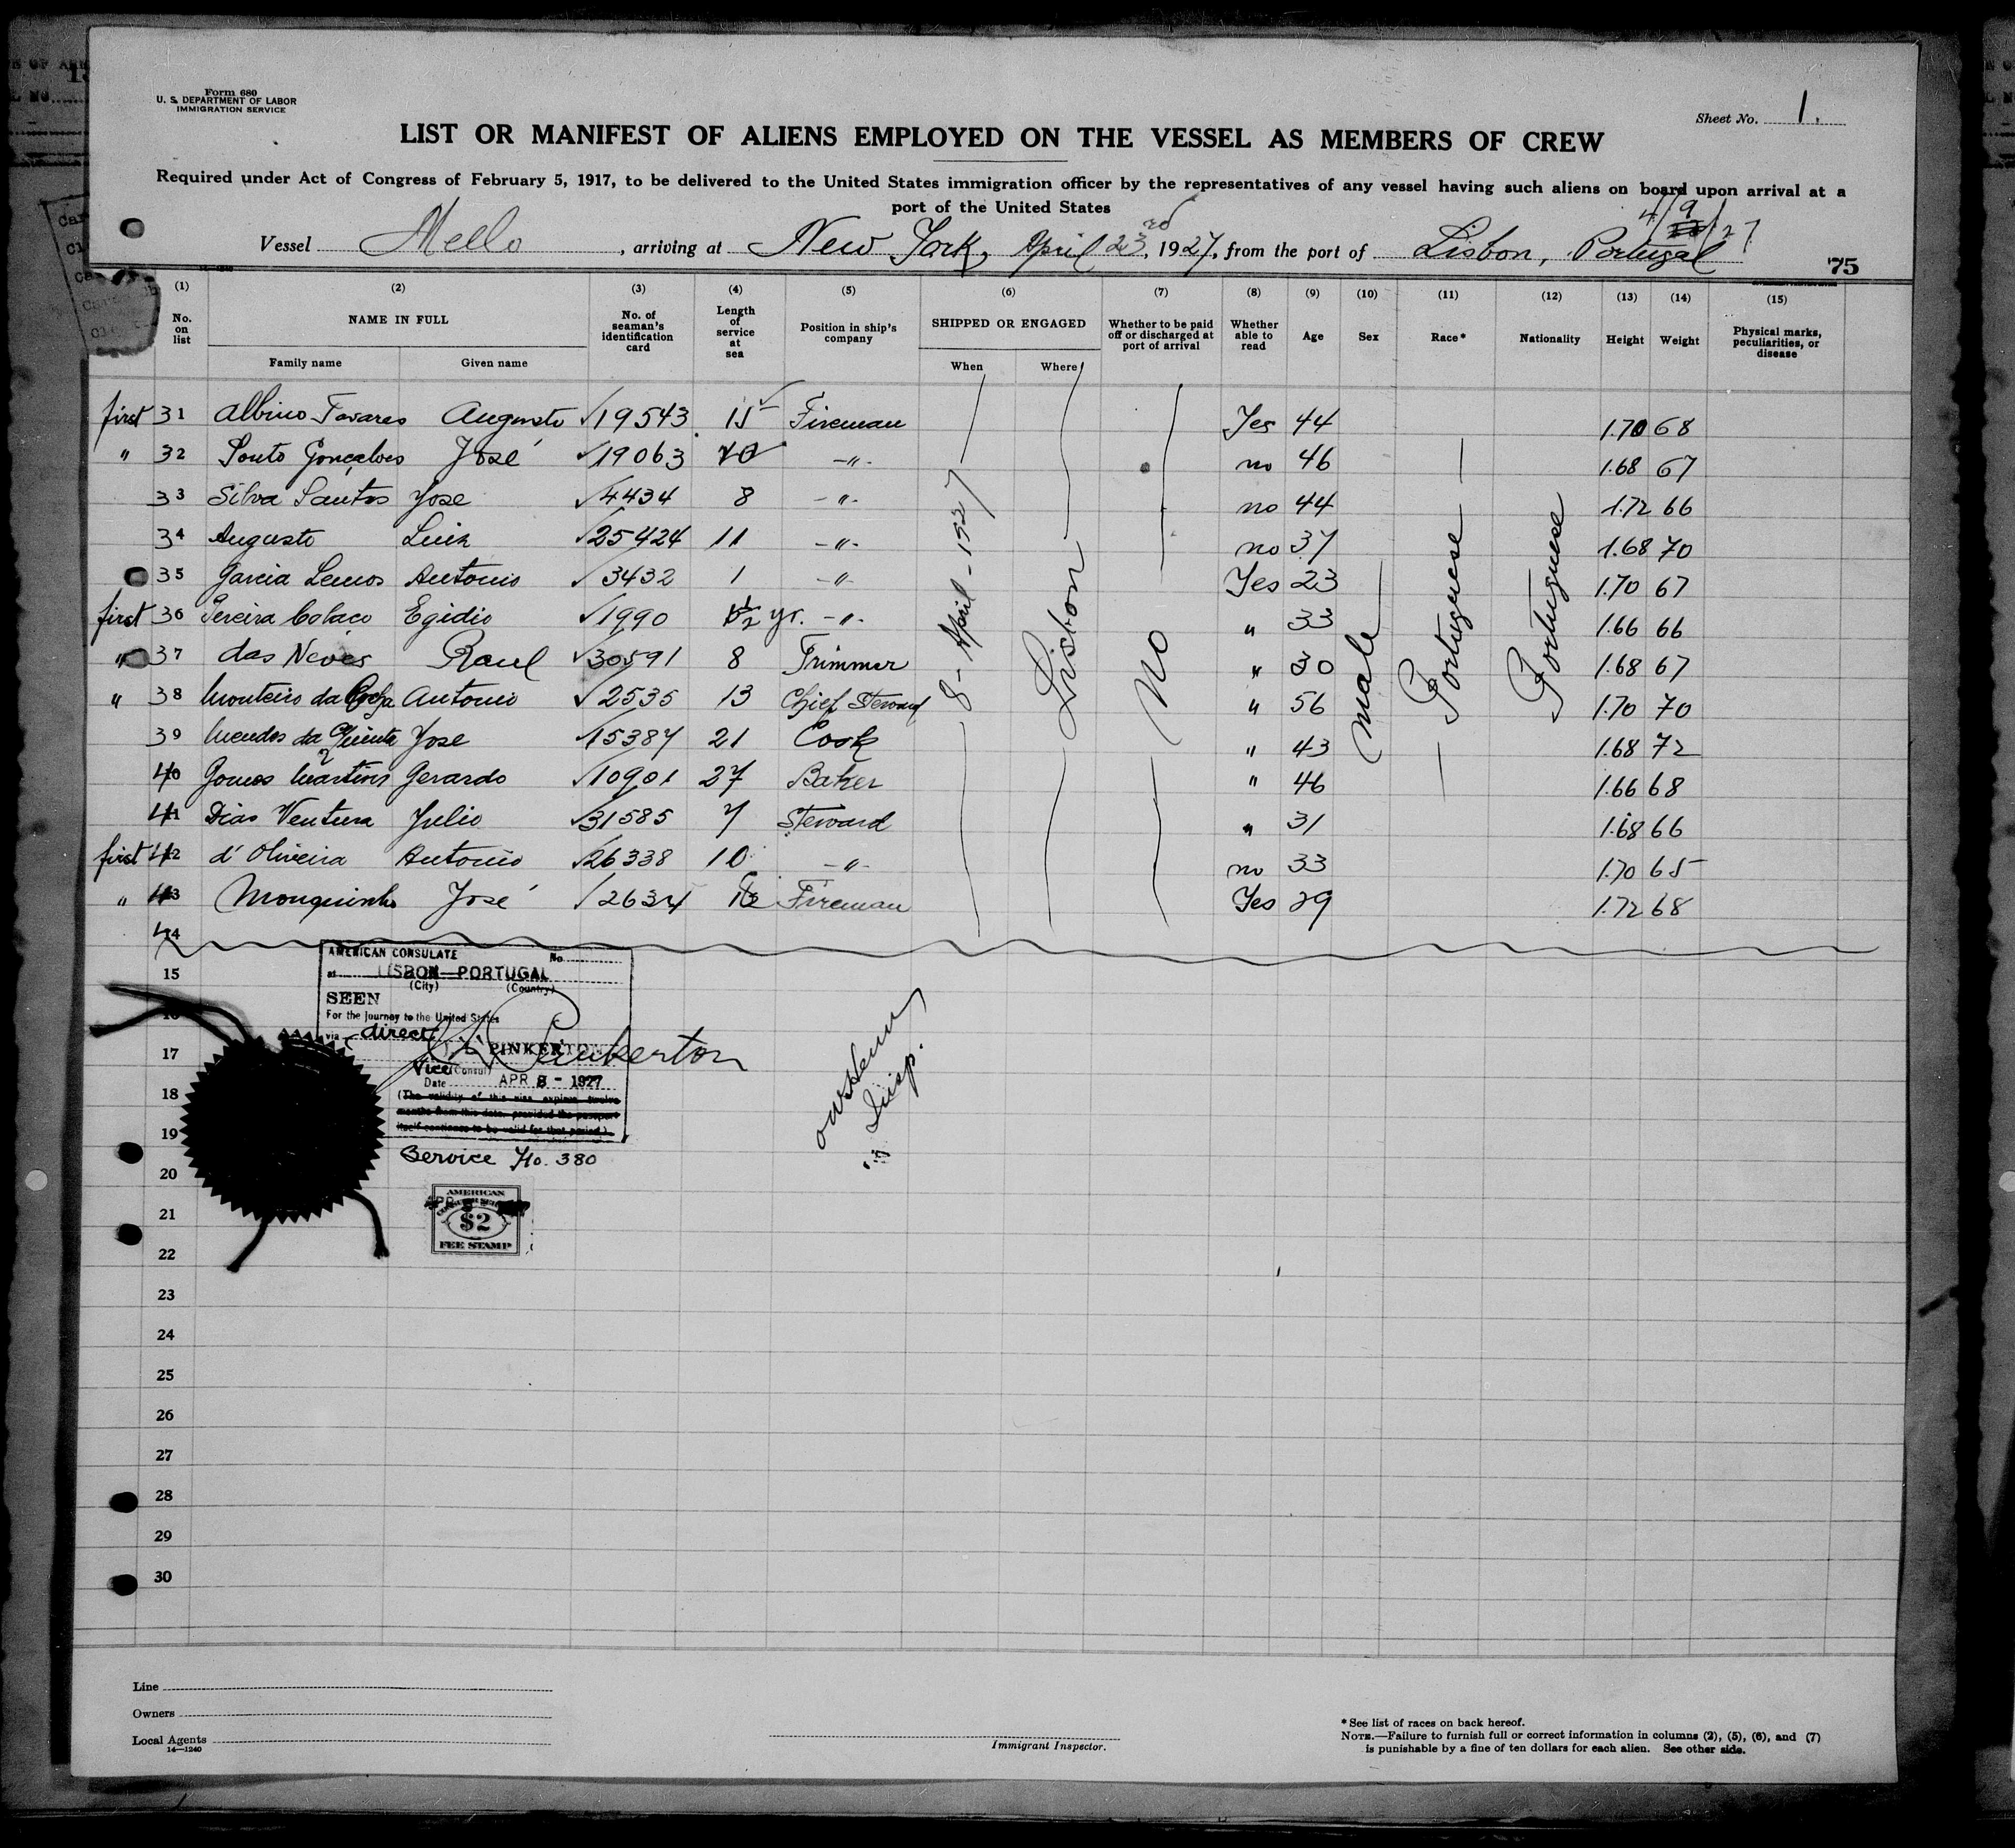 Form 680
U. S. DEPARTMENT OF LABOR
IMMIGRATION SERVICE
Sheet No. 1.
LIST OR MANIFEST OF ALIENS EMPLOYED ON THE VESSEL AS MEMBERS OF CREW
Required under Act of Congress of February 5, 1917, to be delivered to the United States immigration officer by the representatives of any vessel having such aliens on board upon arrival at a
port of the United States
4/9/27
Vessel Mello, arriving at New York, April 23rd, 1927, from the port of Lisbon, Portugal
75
(1) (2) (3) (4) (5) (6) (7) (8) (9) (10) (11) (12) (13) (14) (15)
No. on list NAME IN FULL No. of seaman's identification card Length of service at sea Position in ship's company SHIPPED OR ENGAGED Whether to be paid off or discharged at port of arrival Whether able to read Age Sex Race* Nationality Height Weight Physical marks, peculiarities, or disease
Family name Given name When Where
first 31 Albino Tavares Augusto 19543 15 Fireman Yes 44 1.70 68
" 32 Souto Gonçalves José 19063 -"- no 46 1.68 67
33 Silva Santos Jose 4434 8 -"- no 44 1.72 66
34 Augusto Luiz 25424 11 -"- no 37 1.68 70
35 Garcia Lemos Antonio 3432 1 -"- Yes 23 1.70 67
first 36 Pereira Colaco Egidio 1990 yr. -"- " 33 1.66 66
" 37 das Neves Raul 30591 8 Trimmer " 30 1.68 67
" 38 Monteiro da Antonio 2535 13 Chief Steward " 56 1.70 70
39 Mendes da Quinta Jose 15387 21 Cook " 43 1.68 72
40 Gomes Martins Gerardo 10901 27 Baker " 46 1.66 68
41 Dias Ventura Julio 31585 7 Steward " 31 1.68 66
first 42 d'Oliveira Antonio 26338 10 -"- no 33 1.70 65
" 43 Monquinho José 2634 Fireman Yes 29 1.72 68
8 - April - 1927
Lisbon
No
Male
Portuguese
Portuguese
44
15
16
17
18
19
20
21
22
23
24
25
26
27
28
29
30
AMERICAN CONSULATE No.
at LISBON—PORTUGAL
(City) (Country)
SEEN
For the journey to the United States
via direct
PINKERTON
Pinkerton
Vice Consul
Date APR 8 - 1927
(The validity of this visa expires twelve
months from this date, provided the passport
itself continues to be valid for that period.)
Service No. 380
AMERICAN
$2
FEE STAMP
Disp.
Line
Owners
Local Agents
14—1240
Immigrant Inspector.
*See list of races on back hereof.
NOTE.—Failure to furnish full or correct information in columns (2), (5), (6), and (7)
is punishable by a fine of ten dollars for each alien. See other side.